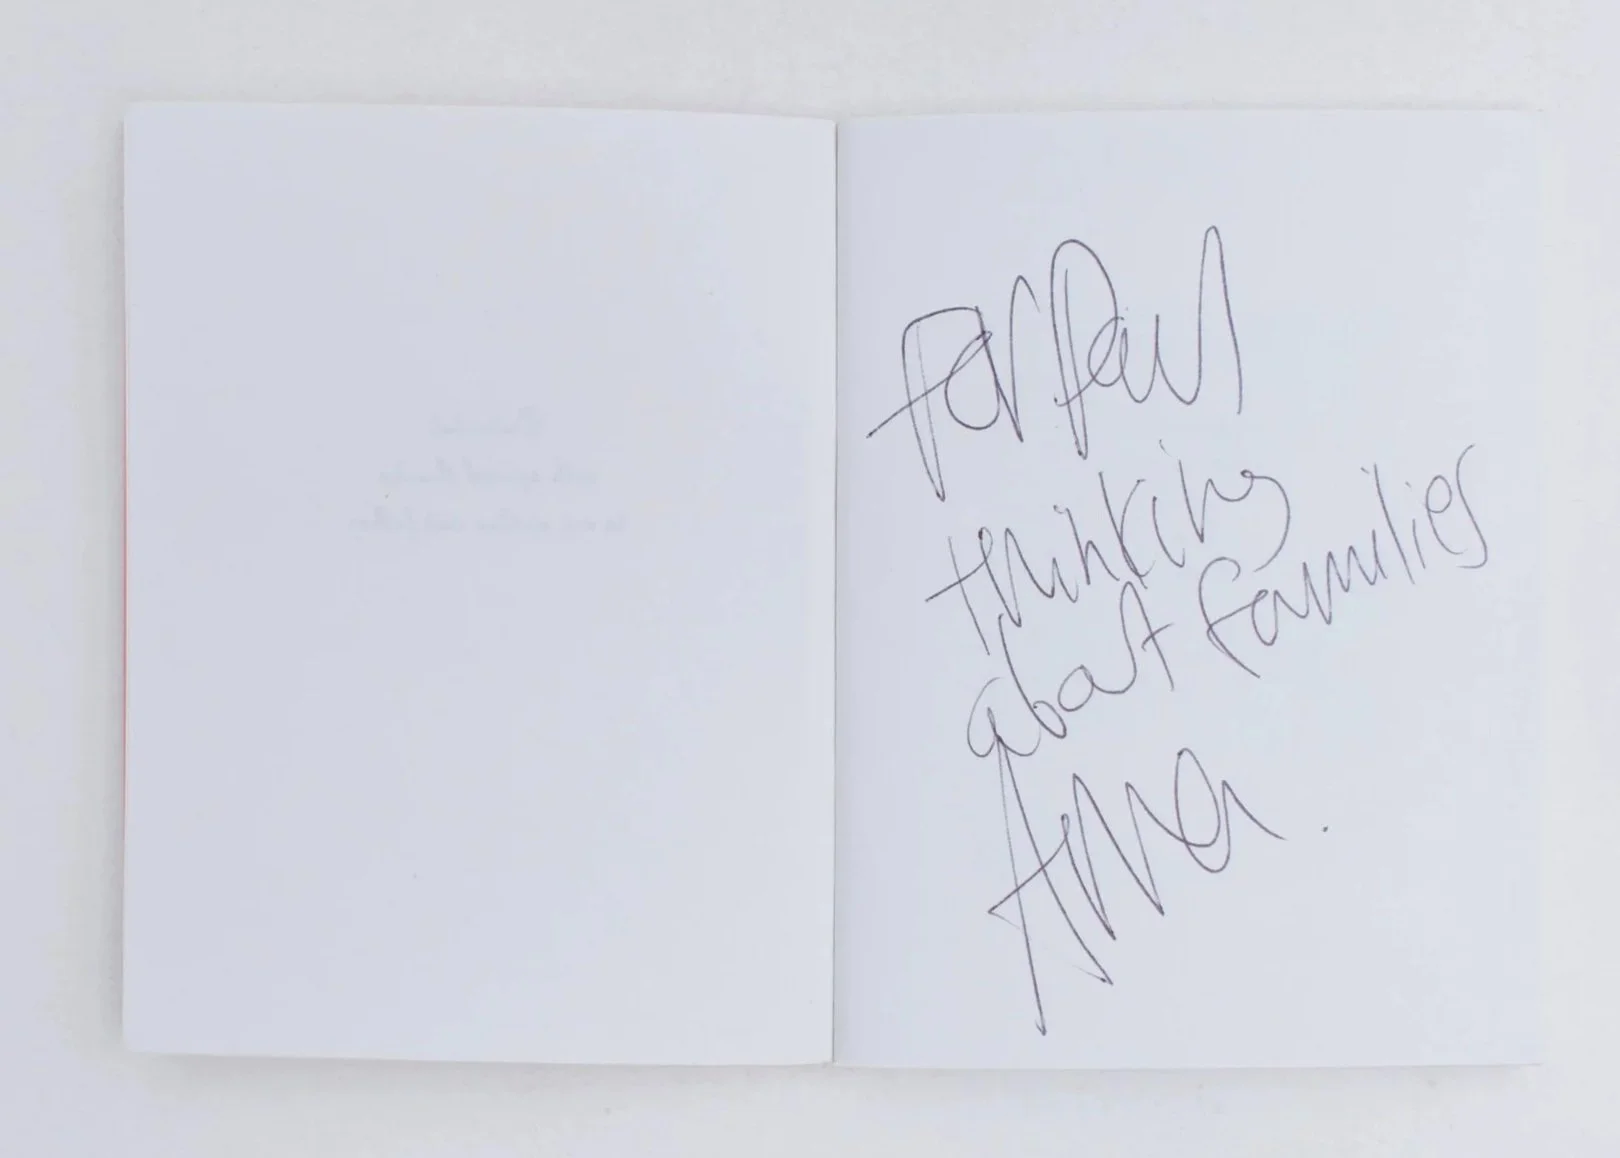 For Paul
thinking
about families
Anna.